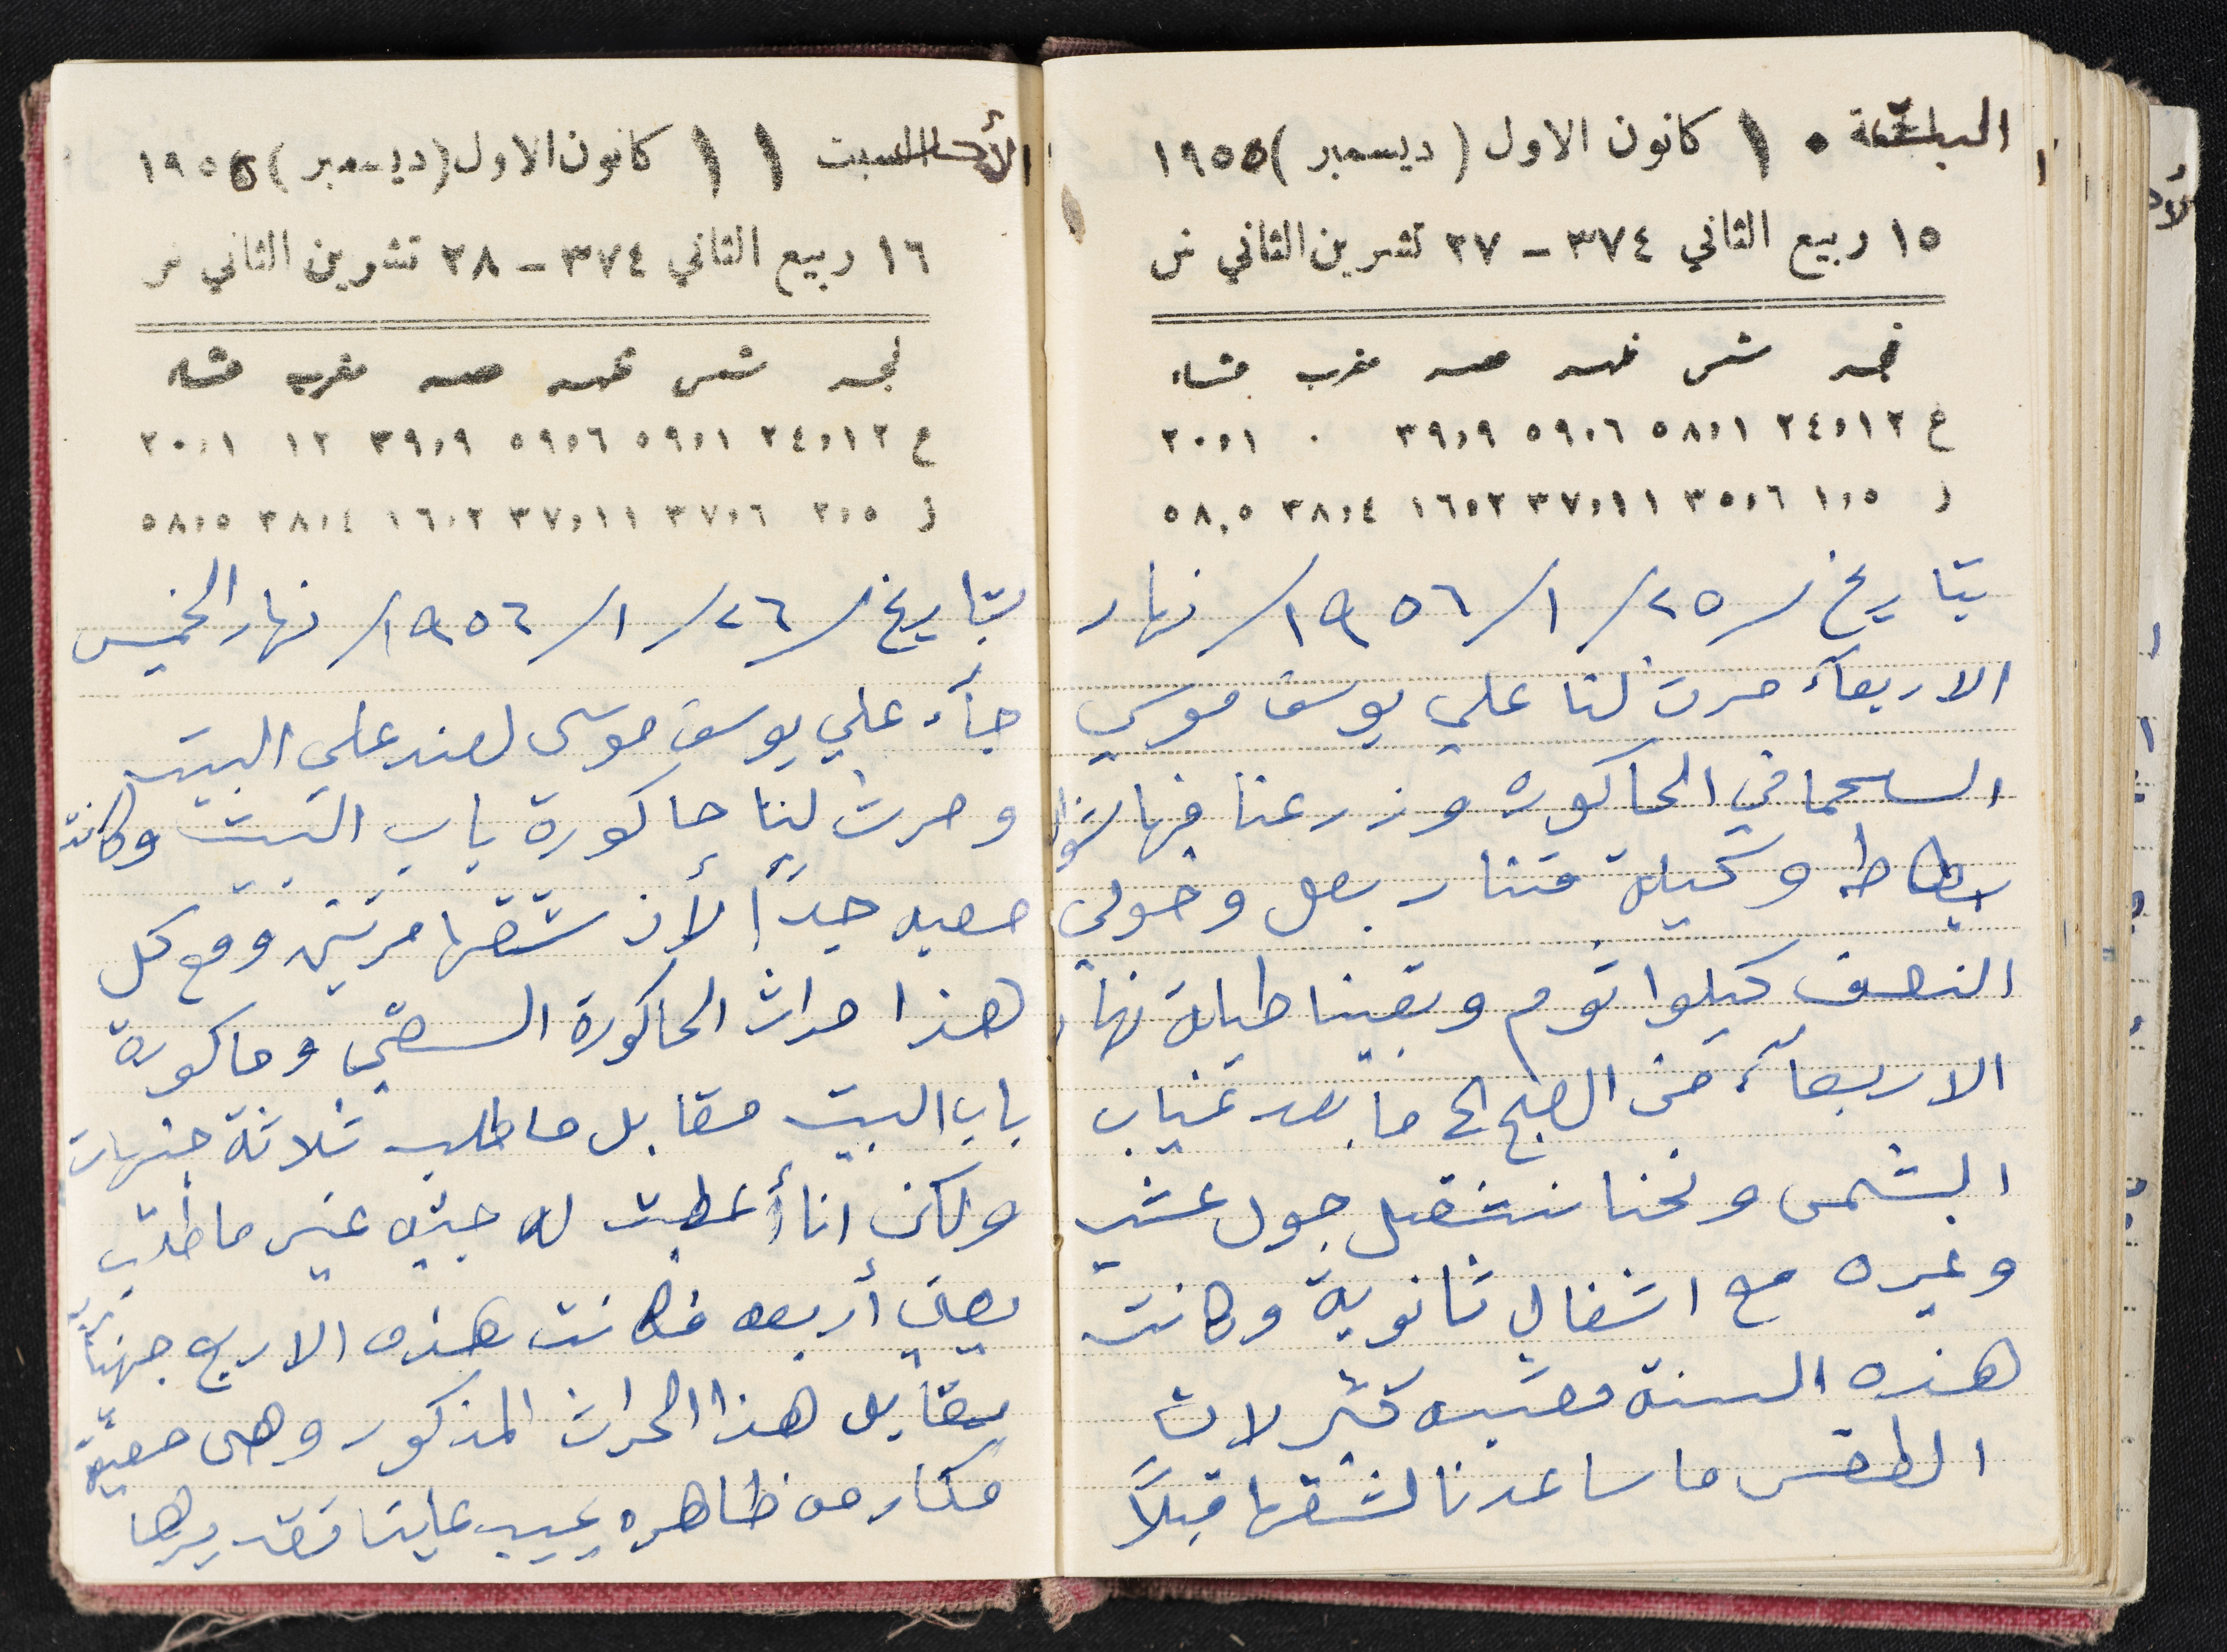 السبت ١٠ كانون الاول (ديسمبر) ١٩٥٥
١٥ ربيع الثاني ٣٧٤ - ٢٧ تشرين الثاني ش
فجر شمس ظهر عصر مغرب عشاء
ع ٢٤،١٢ ٥٨،١ ٥٩،٦ ٣٩،٩ ٠ ٢٠،١
ز ١،٥ ٣٥،٦ ٣٧،١١ ١٦،٢ ٣٨،٤ ٥٨،٥
بتاريخ /٢٥/ ١/ ١٩٥٦/ نهار
الاربعآء حرث لنا علي يوسف موسى
في الحاكوره وزرعنا فيها شوال
بطاطه وكيلة قنار بصل وحولى
النصف كيلوا توم وبقينا طيلة نهار
الاربعآء من الصبح الى ما بعد غياب
الشمس ونحنا ننشتغل حول عشب
وغيره مع اشغال ثانوية وكانت
هذه السنة معشبه كثير لان
الطقس ما ساعدنا لشقها قبلاً
الأحد السبت ١١ كانون الاول (ديسمبر) ١٩٥٥
١٦ ربيع الثاني ٣٧٤ - ٢٨ تشرين الثاني ش
فجر شمس ظهر عصر مغرب عشاء
ع ٢٤،١٢ ٥٩،١ ٥٩،٦ ٣٩،٩ ١٢ ٢٠،١
ز ٢،٥ ٣٧،٦ ٣٧،١١ ١٦،٢ ٣٨،٤ ٥٨،٥
بتاريخ /٢٦/ ١/ ١٩٥٦/ نهار الخميس
جآء علي يوسف موسى لعند على البيت
وحرث لنا حاكورة باب البيت وكانت
صعبه جداً لأن شقها مرتين ومع كل
هذا حراث الحاكورة وحاكورة
باب البيت مقابل ما طلب ثلاثة جنيهات
ولكن انا أعطيت له جنيه غير ما طلب
يعني أربعه فكانت هذه الاربع جنيهات
مقابل هذا الحراث المذكور وهي صعبة
ظاهره علينا تقديرها